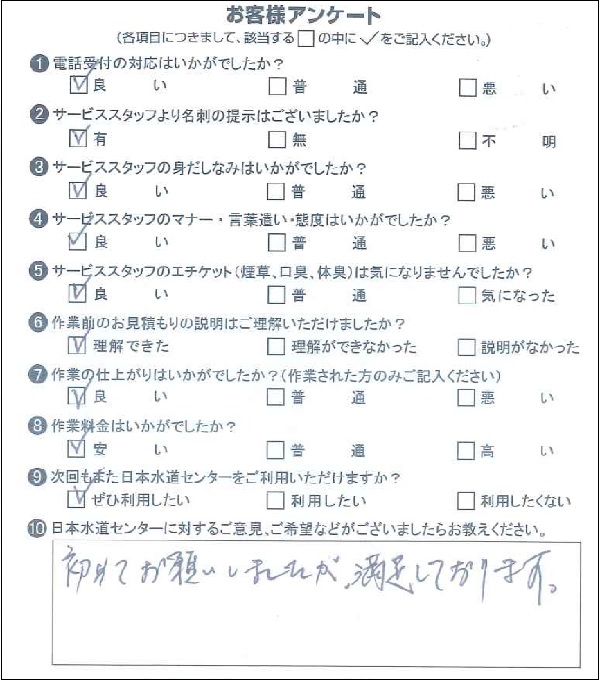 お客様アンケート
(各項目につきまして、該当する□の中に✓をご記入ください。)
❶電話受付の対応はいかがでしたか?
☑良い □普通 □悪い
❷サービススタッフより名刺の提示はございましたか?
☑有 □無 □不明
❸サービススタッフの身だしなみはいかがでしたか?
☑良い □普通 □悪い
❹サービススタッフのマナー・言葉遣い・態度はいかがでしたか?
☑良い □普通 □悪い
❺サービススタッフのエチケット(煙草、口臭、体臭)は気になりませんでしたか?
☑良い □普通 □気になった
❻作業前のお見積もりの説明はご理解いただけましたか?
☑理解できた □理解ができなかった □説明がなかった
❼作業の仕上がりはいかがでしたか?(作業された方のみご記入ください)
☑良い □普通 □悪い
❽作業料金はいかがでしたか?
☑安い □普通 □高い
❾次回もまた日本水道センターをご利用いただけますか?
☑ぜひ利用したい □利用したい □利用したくない
❿日本水道センターに対するご意見、ご希望などがございましたらお教えください。
初めてお願いしましたが、満足しております。